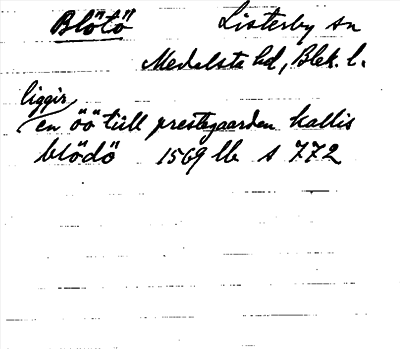 Blötö Listerby sn
Medelsta hd, Blek. l.
liggir
en öö till prestegaarden kallis
blödö 1569 lb s 772